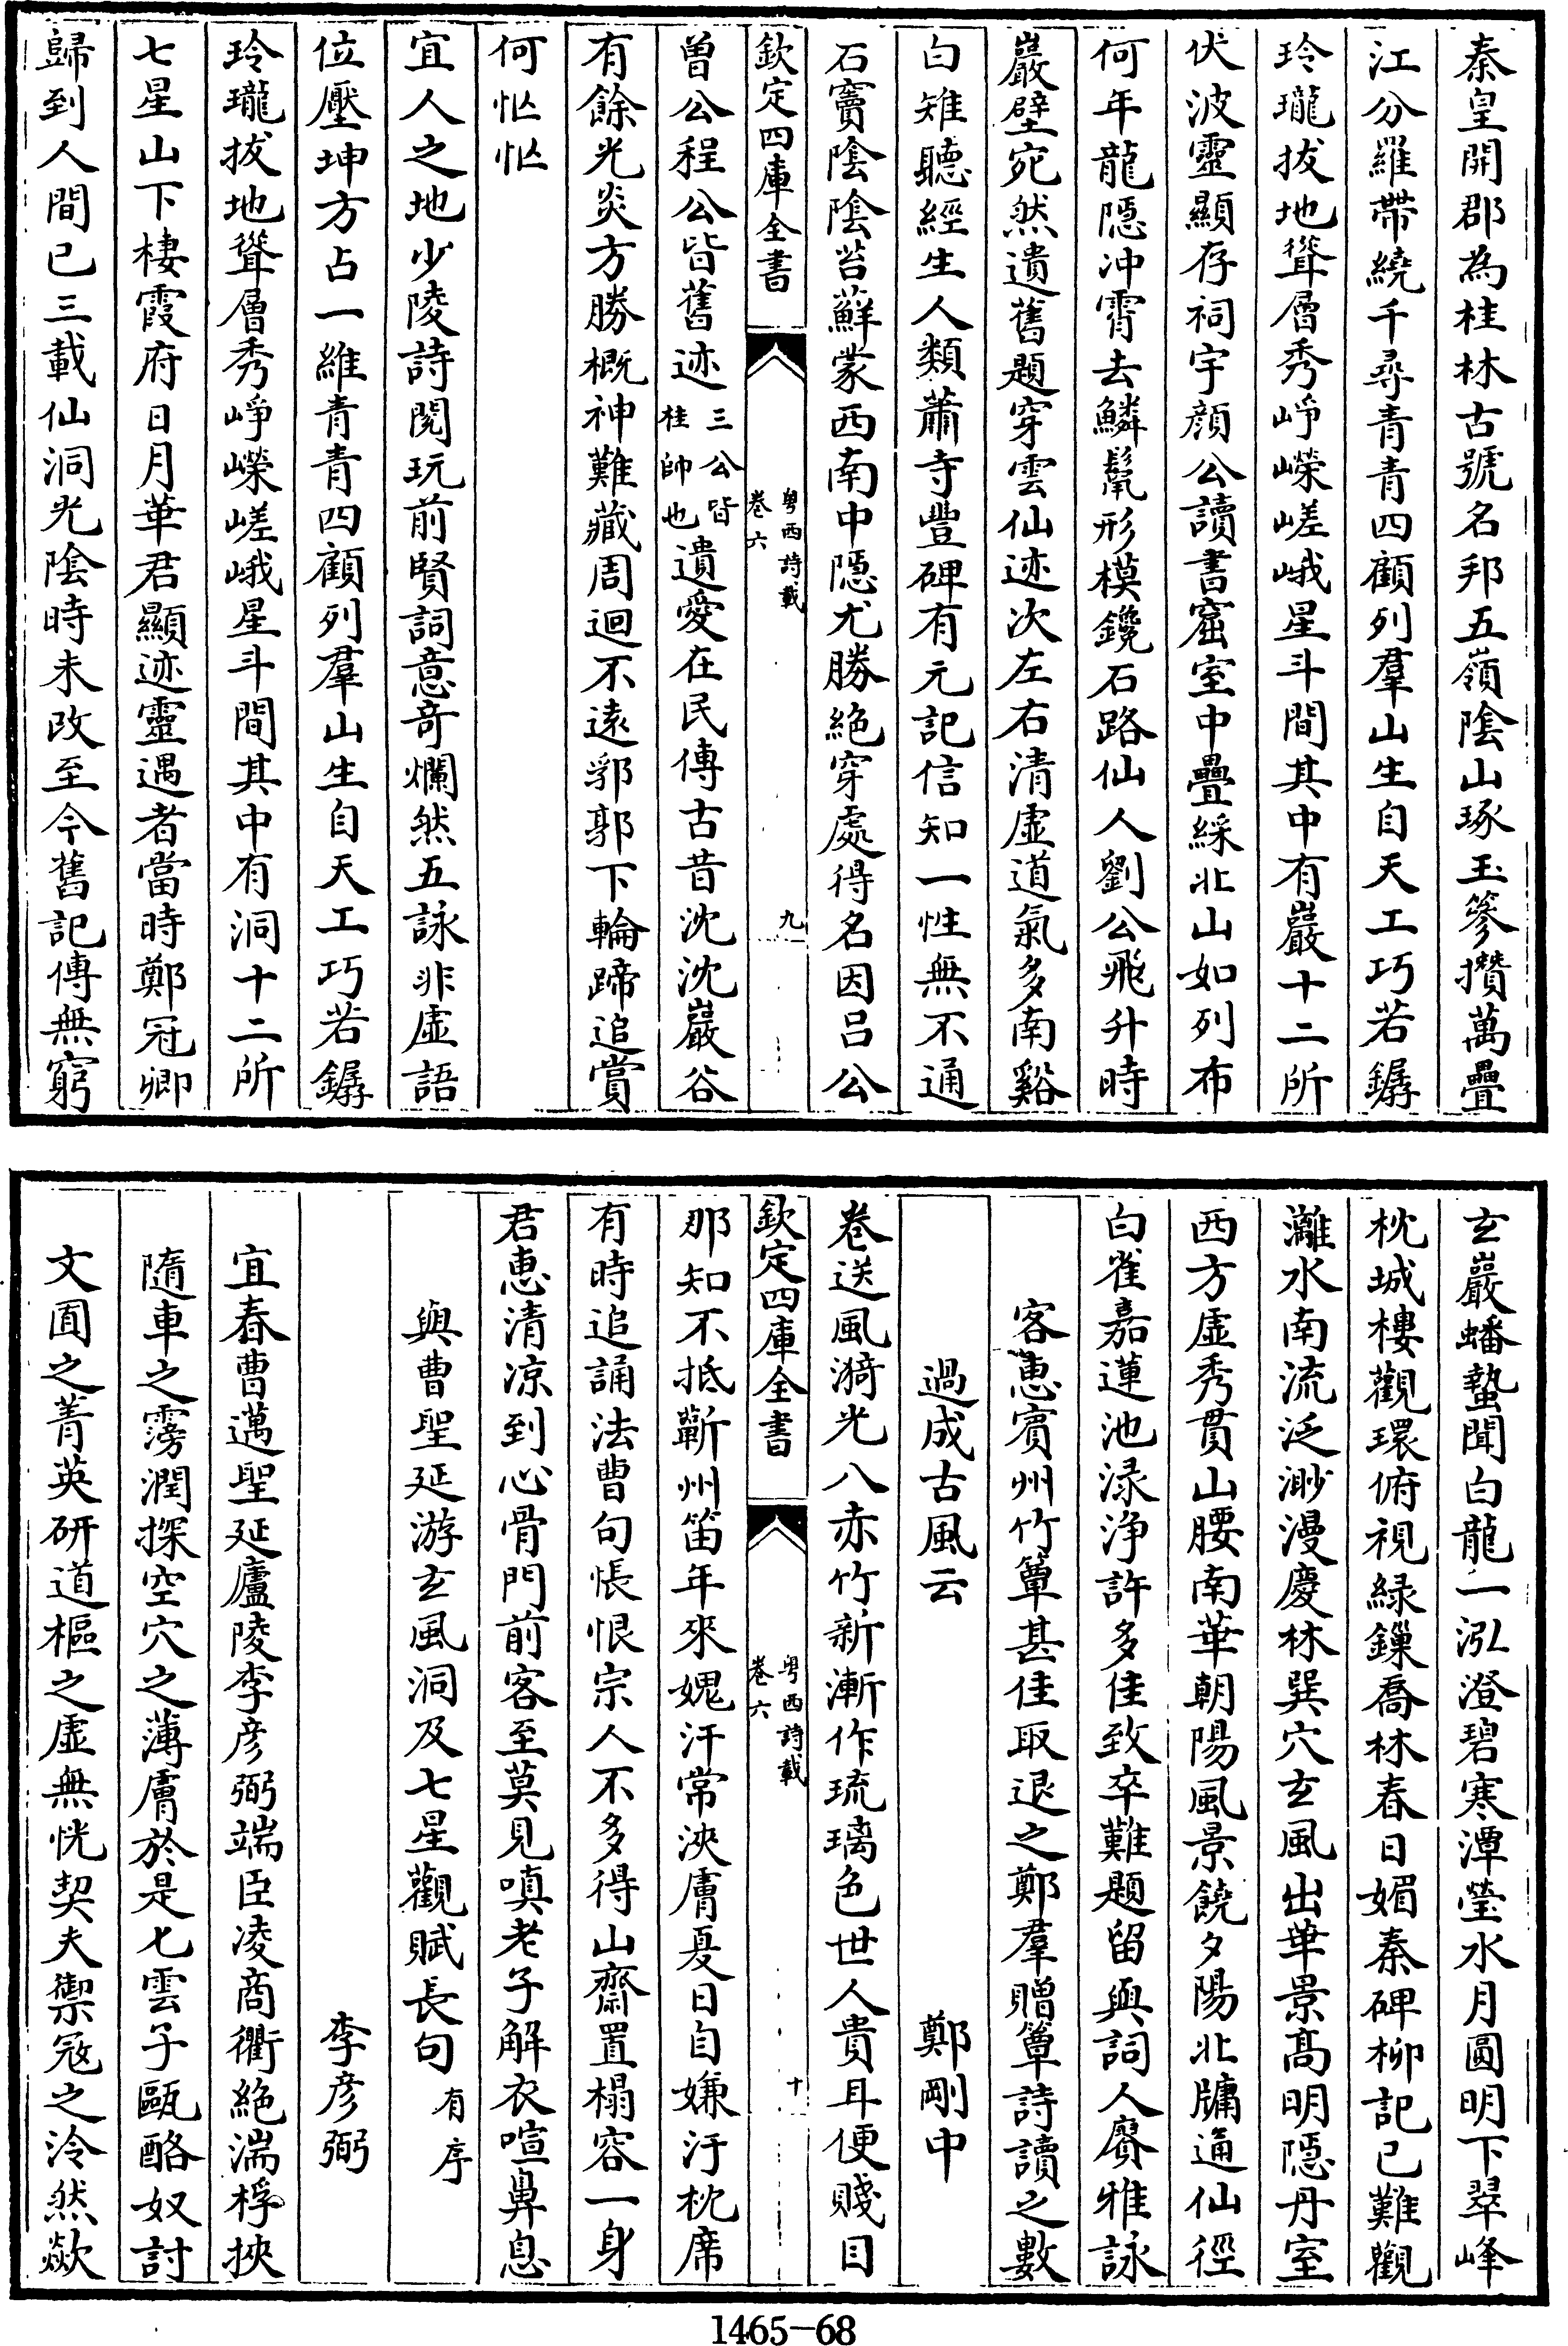 秦皇開郡為桂林古號名邦五嶺隂山琢玉篸攢萬疊
江分羅帶繞千尋青青四顧列羣山生自天工巧若鐊
玲瓏拔地聳層秀崢嶸嵯峨星斗間其中有巖十二所
伏波靈顯存祠宇顔公讀書窟室中疊綵北山如列布
何年龍隠沖霄去鱗鬛形模鑱石路仙人劉公飛升時
巖壁宛然遺舊題穿雲仙迹次左右清虚道氣多南谿
白雉聽經生人類蕭寺豐碑有元記信知一性無不通
石竇隂隂苔蘚蒙西南中隠尤勝絶穿處得名因吕公
欽定四庫全書
粤西詩載
卷六
九
曽公程公皆舊迹三公皆桂帥也遺愛在民傳古昔沈沈巖谷
有餘光炎方勝概神難藏周迴不逺郛郭下輪蹄追賞
何怱怱
宜人之地少陵詩閱玩前賢詞意竒爛然五詠非虚語
位壓坤方占一維青青四顧列羣山生自天工巧若鐊
玲瓏拔地聳層秀崢嶸嵯峨星斗間其中有洞十二所
七星山下棲霞府日月華君顯迹靈遇者當時鄭冠卿
歸到人間已三載仙洞光隂時未改至今舊記傳無窮
玄巖蟠蟄聞白龍一泓澄碧寒潭瑩水月圓明下翠峰
枕城樓觀環俯視緑鏁喬林春日媚秦碑柳記已難觀
灕水南流泛渺漫慶林巽穴玄風出華景髙明隠丹室
西方虚秀貫山腰南華朝陽風景饒夕陽北牖通仙徑
白雀嘉蓮池渌浄許多佳致卒難題留與詞人賡雅詠
客惠賓州竹簟甚佳取退之鄭羣贈簟詩讀之數
過成古風云
鄭剛中
卷送風漪光八赤竹新漸作琉璃色世人貴耳便賤目
欽定四庫全書
粤西詩載
卷六
十
那知不抵蘄州笛年來媿汗常浹膚夏日自嫌汙枕席
有時追誦法曹句悵恨宗人不多得山齋置榻容一身
君惠清凉到心骨門前客至莫見嗔老子解衣喧鼻息
與曹聖延游玄風洞及七星觀賦長句有序
李彦弼
宜春曹邁聖延廬陵李彦弼端臣凌商衢絶湍桴挾
隨車之霶潤探空穴之薄膚於是七雲子甌酪奴討
文囿之菁英研道樞之虚無恍契夫禦冦之泠然歘
1465—68